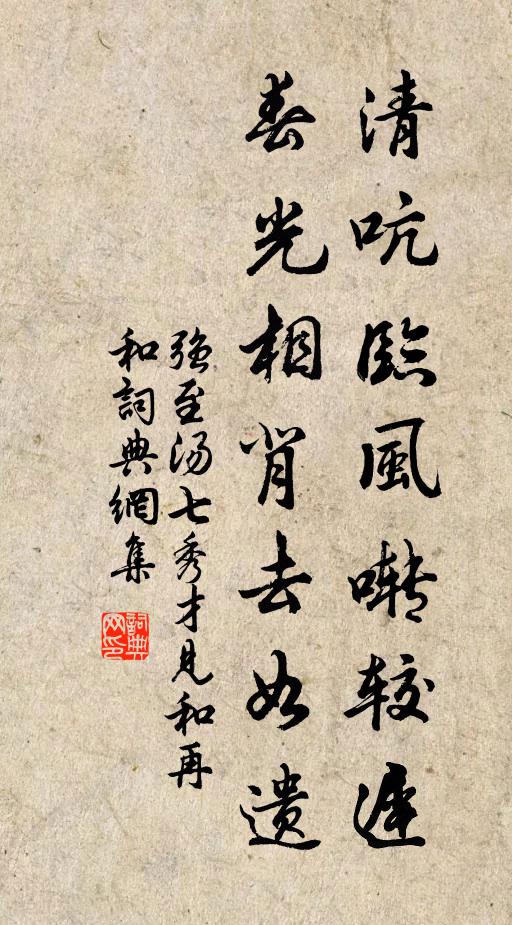 清吭臨風囀较遲
春光相背去如遗
強至湯七秀才見和再
和詞典網集
詞典网印